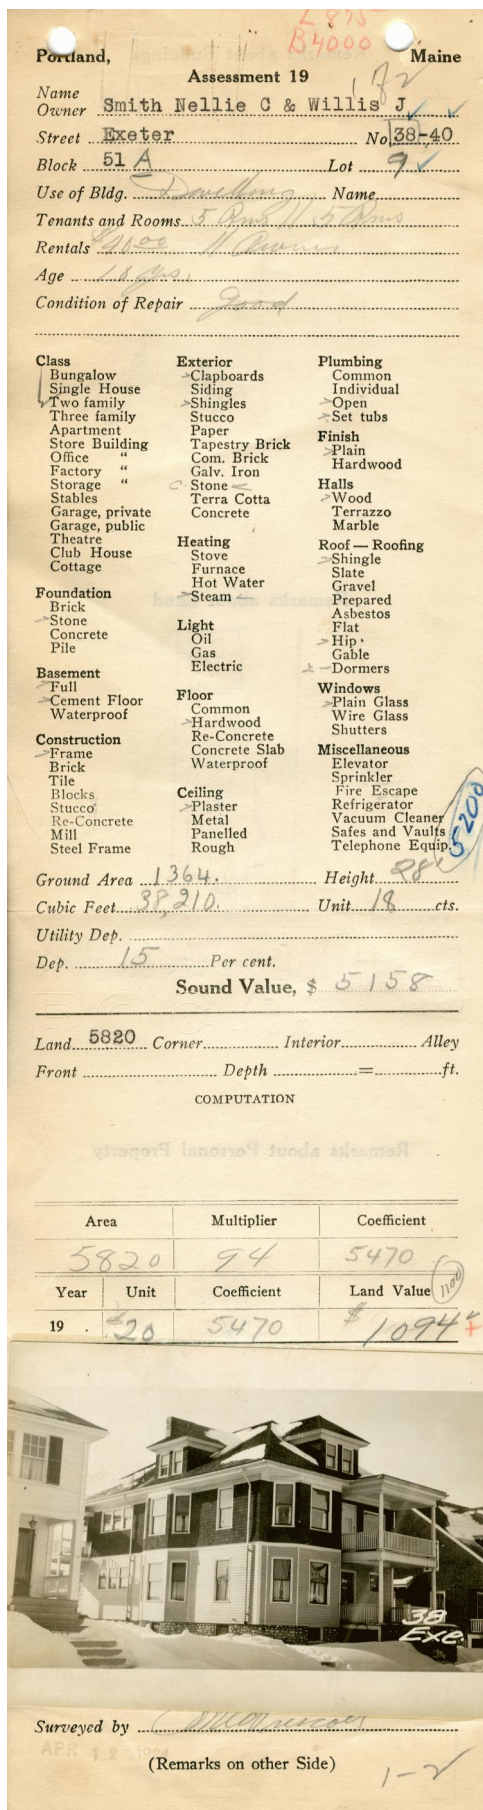 L 875
B4000
Portland, Maine
Assessment 19
1 of 2
Name
Owner Smith Nellie C & Willis J
Street Exeter No 38-40
Block 51 A Lot 9
Use of Bldg. Dwelling Name
Tenants and Rooms 5 Rms // 5 Rms
Rentals $40.00 // Owner
Age 10 yrs.
Condition of Repair Good
Class
Bungalow
Single House
Two family
Three family
Apartment
Store Building
Office "
Factory "
Storage "
Stables
Garage, private
Garage, public
Theatre
Club House
Cottage
Foundation
Brick
Stone
Concrete
Pile
Basement
Full
Cement Floor
Waterproof
Construction
Frame
Brick
Tile
Blocks
Stucco
Re-Concrete
Mill
Steel Frame
Exterior
Clapboards
Siding
Shingles
Stucco
Paper
Tapestry Brick
Com. Brick
Galv. Iron
C. Stone
Terra Cotta
Concrete
Heating
Stove
Furnace
Hot Water
Steam
Light
Oil
Gas
Electric
Floor
Common
Hardwood
Re-Concrete
Concrete Slab
Waterproof
Ceiling
Plaster
Metal
Panelled
Rough
Plumbing
Common
Individual
Open
Set tubs
Finish
Plain
Hardwood
Halls
Wood
Terrazzo
Marble
Roof — Roofing
Shingle
Slate
Gravel
Prepared
Asbestos
Flat
Hip
Gable
2 - Dormers
Windows
Plain Glass
Wire Glass
Shutters
Miscellaneous
Elevator
Sprinkler
Fire Escape
Refrigerator
Vacuum Cleaner
Safes and Vaults
Telephone Equip.
5200
Ground Area 1364. Height 28'
Cubic Feet 38,210. Unit 18 cts.
Utility Dep.
Dep. 15 Per cent.
Sound Value, $ 5158
Land 5820 Corner Interior Alley
Front Depth = ft.
COMPUTATION
Remarks about Personal Property
Area Multiplier Coefficient
5820 94 5470
Year Unit Coefficient Land Value 1100
19 . $20 5470 $1094
38
Exe.
Surveyed by
APR 12
(Remarks on other Side)
1-2